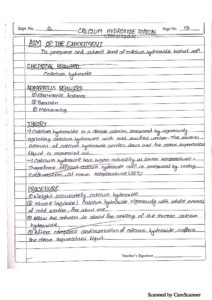 Expt. No. 6
Page No. 13
CALCIUM HYDROXIDE TOPICAL SOLUTION
AIM OF THE EXPERIMENT
To prepare and submit 20ml of calcium hydroxide topical solⁿ
CHEMICAL REQUIRED
Calcium hydroxide
APPARATUS REQUIRED
① Electronic balance
② 
③ Measuring
THEORY
→ Calcium hydroxide is a simple solution prepared by vigorously
agitating calcium hydroxide with cold purified water. The excess
amount of calcium hydroxide settles down and the clear supernatant
liquid is dispensed out.
→ Calcium hydroxide has higher solubility at lower temperature.
Therefore calcium hydroxide solⁿ is prepared by using
cold water at room temperature (25°C)
PROCEDURE
① Weight accurately calcium hydroxide.
② Shake (agitate) calcium hydroxide vigorously with whole amount
of cold water for about one
③ Allow the solution to stand for settling of the excess calcium
hydroxide.
④ After complete sedimentation of calcium hydroxide, collect
the clear supernatant liquid.
Teacher's Signature
Scanned by CamScanner